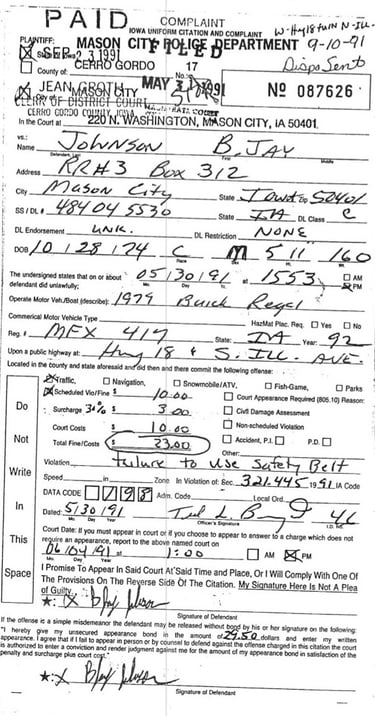 PAID
COMPLAINT
IOWA UNIFORM CITATION AND COMPLAINT
W-Hwy 18 turn N-Ill.
PLAINTIFF:
MASON CITY POLICE DEPARTMENT
FILED
9-10-91
SEP 23 1991
CERRO GORDO
17
Dispo Sent
County of:
No.
MAY 31 1991
No 087626
JEAN GROTH
MASON CITY
CLERK OF DISTRICT COURT
CERRO GORDO COUNTY, IOWA
In the Court at 220 N. WASHINGTON, MASON CITY, IA 50401.
vs.:
Name Johnson B. JAY
Defendant, Last First Middle
Address RR#3 Box 312
City Mason City State Iowa Zip 50401
SS / DL # 484045530 State IA DL Class C
DL Endorsement UNK. DL Restriction NONE
DOB 10/28/74 C M 5 11 160
The undersigned states that on or about 05/30/91 at 1553 AM
defendant did unlawfully; Mo. Day Year PM
Operate Motor Veh./Boat (describe): 1979 Buick Regal
Commerical Motor Vehicle Type HazMat Plac. Req. Yes No
Reg. # MFX 417 State: IA Year 92
Upon a public highway at: Hwy 18 & S. ILL. AVE.
Located in the county and state aforesaid and did then and there commit the following offense:
Traffic, Navigation, Snowmobile/ATV, Fish-Game, Parks
Scheduled Vio/Fine $ 10.00 Court Appearance Required (805.10) Reason:
Do
Surcharge 30% $ 3.00 Civil Damage Assessment
Not
Court Costs $ 10.00 Non-scheduled Violation
Total Fine/Costs $ 23.00 Accident, P.I. P.D.
Other:
Write
Violation: Failure to Use Safety Belt
Speed in Zone In Violation of: Sec. 321.445 1991 IA Code
DATA CODE Adm. Code Local Ord.
In
Dated: 5/30/91 46
Mo. Day Year Officer's Signature I.D. NO.
This
Court Date: If you must appear in court or if you choose to appear to answer to a charge which does not
require an appearance, report to the above named court on
06/04/91 at 1:00 AM PM
Mo. Day Year
Space
I Promise To Appear In Said Court At Said Time and Place, Or I Will Comply With One Of
The Provisions On The Reverse Side Of The Citation. My Signature Here Is Not A Plea
of Guilty.
★: X B Jay Johnson
Signature of Defendant
If the offense is a simple misdemeanor the defendant may be released without bond by his or her signature on the following:
"I hereby give my unsecured appearance bond in the amount of 29.50 dollars and enter my written
appearance. I agree that if I fail to appear in person or by counsel to defend against the offense charged in this citation the court
is authorized to enter a conviction and render judgment against me for the amount of my appearance bond in satisfaction of the
penalty and surcharge plus court cost."
★: X B Jay Johnson
Signature of Defendant